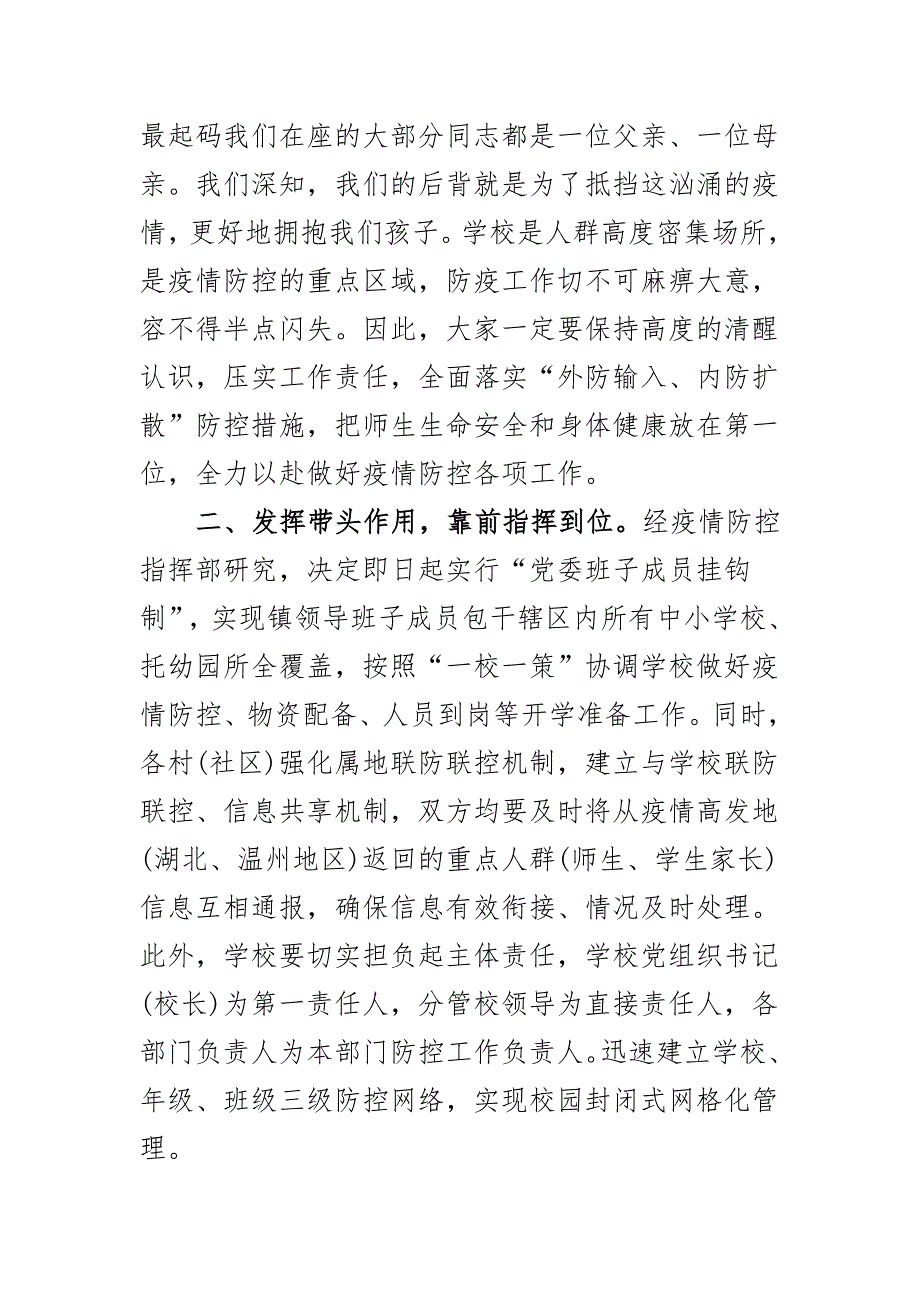 最起码我们在座的大部分同志都是一位父亲、一位母
亲。我们深知，我们的后背就是为了抵挡这汹涌的疫
情，更好地拥抱我们孩子。学校是人群高度密集场所，
是疫情防控的重点区域，防疫工作切不可麻痹大意，
容不得半点闪失。因此，大家一定要保持高度的清醒
认识，压实工作责任，全面落实“外防输入、内防扩
散”防控措施，把师生生命安全和身体健康放在第一
位，全力以赴做好疫情防控各项工作。
二、发挥带头作用，靠前指挥到位。经疫情防控
指挥部研究，决定即日起实行“党委班子成员挂钩
制”，实现镇领导班子成员包干辖区内所有中小学校、
托幼园所全覆盖，按照“一校一策”协调学校做好疫
情防控、物资配备、人员到岗等开学准备工作。同时，
各村(社区)强化属地联防联控机制，建立与学校联防
联控、信息共享机制，双方均要及时将从疫情高发地
(湖北、温州地区)返回的重点人群(师生、学生家长)
信息互相通报，确保信息有效衔接、情况及时处理。
此外，学校要切实担负起主体责任，学校党组织书记
(校长)为第一责任人，分管校领导为直接责任人，各
部门负责人为本部门防控工作负责人。迅速建立学校、
年级、班级三级防控网络，实现校园封闭式网格化管
理。